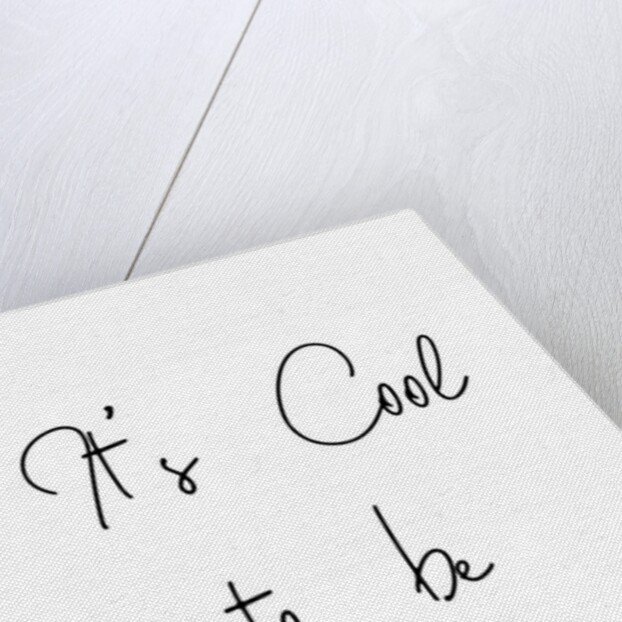 It's Cool
to be